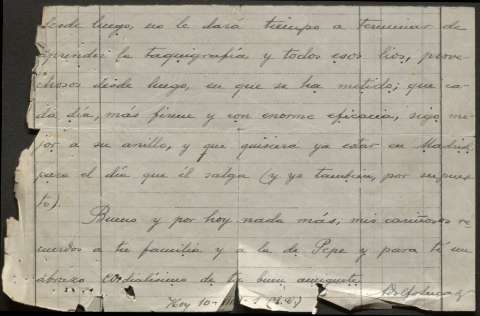 desde luego, no le dará tiempo a terminar de
aprender la taquigrafía y todos esos líos, prove-
chosos desde luego, en que se ha metido; que ca-
da día, más firme y con enorme eficacia, sigo me-
jor a su anillo, y que quisiera ya estar en Madrid
para el día que él salga (y yo también, por supues-
to).
Bueno y por hoy nada más, mis cariñosos re-
cuerdos a tu familia y a la de Pepe y para ti un
abrazo cordialísimo de tu buen amiguete
Hoy 10-